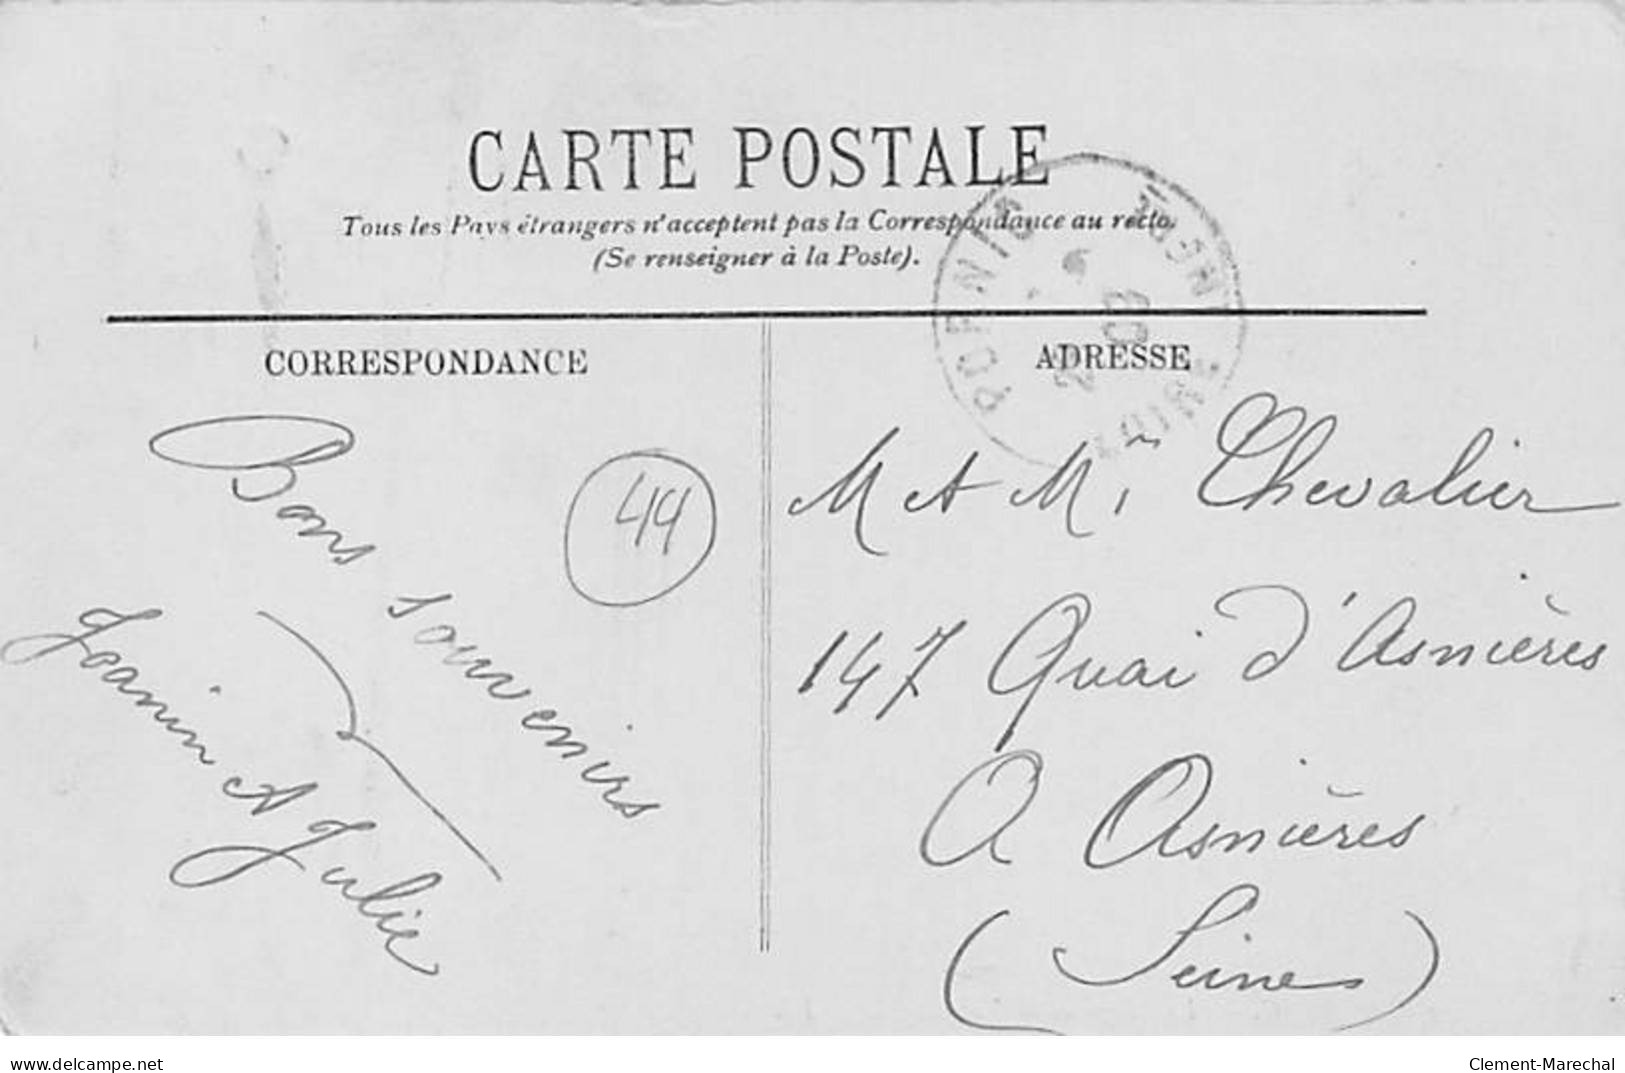 CARTE POSTALE
Tous les Pays étrangers n'acceptent pas la Correspondance au recto.
(Se renseigner à la Poste).
PORNIC
LOIRE
03
CORRESPONDANCE
ADRESSE
Bons souvenirs
Joanin et Julie
44
M et Mme Chevalier
147 Quai d'Asnières
A Asnières
(Seine)
www.delcampe.net
Clement-Marechal